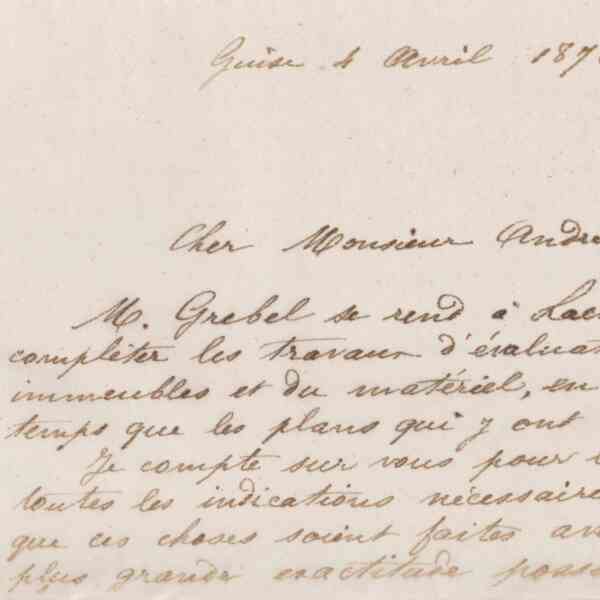 Guise 4 Avril 187
Cher Monsieur André
M. Grebel se rend à Lae
compléter les travaux d'évaluat
immeubles et du matériel, en
temps que les plans qui y ont
Je compte sur vous pour
toutes les indications nécessaire
que ces choses soient faites av
plus grande exactitude poss